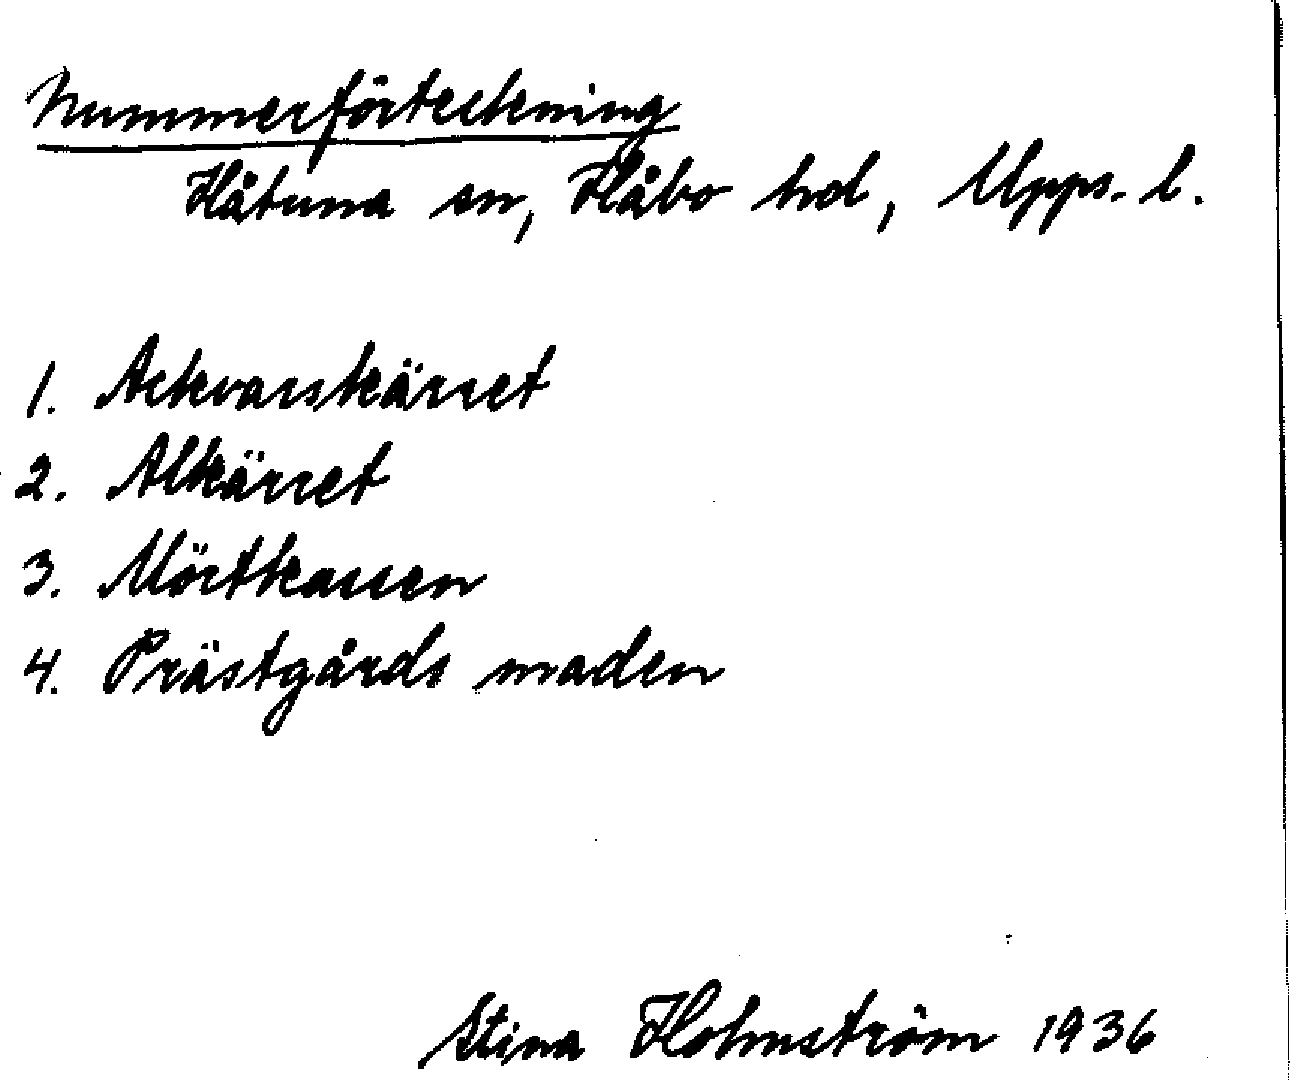 Nummerförteckning
Håtuna sn, Håbo hd, Upps. l.
1. Ackvarskärret
2. Alkärret
3. Mörtkarren
4. Prästgårds maden
Stina Holmström 1936